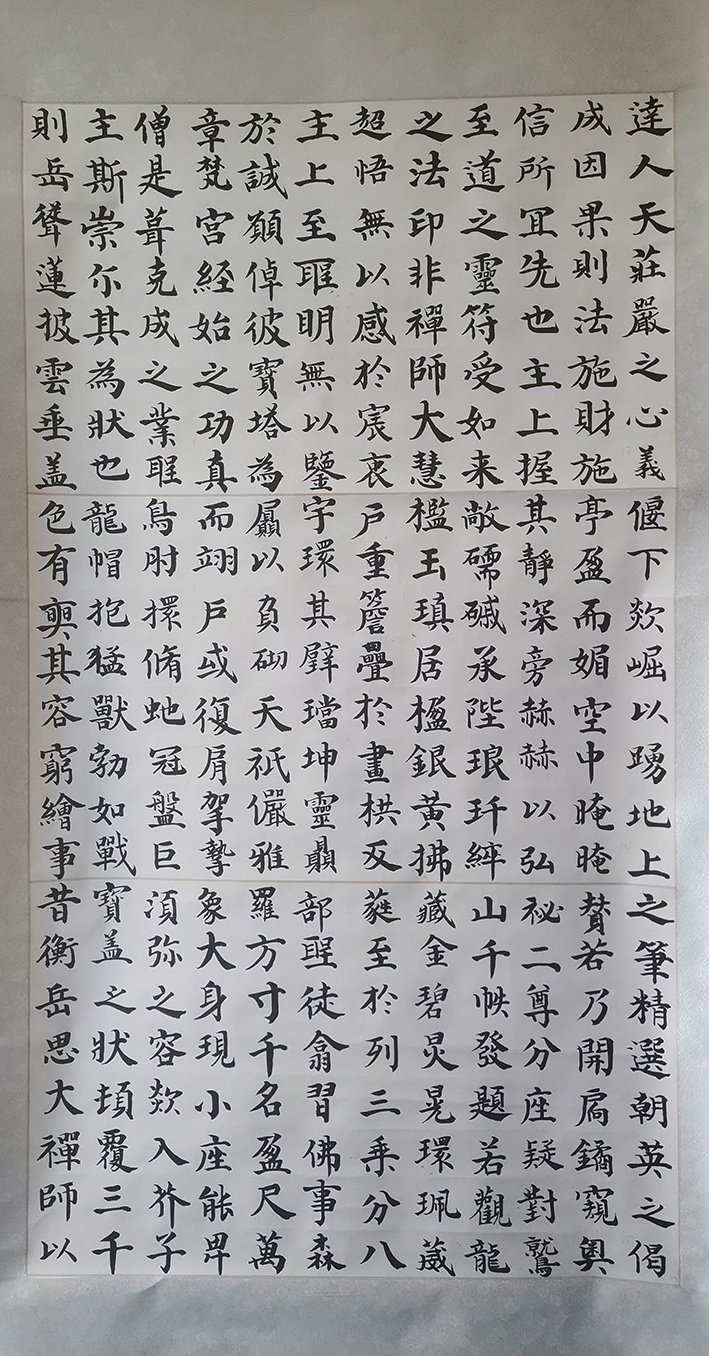 達人天莊嚴之心義
成因果則法施財施
信所冝先也主上握
至道之靈符受如来
之法印非禪師大慧
超悟無以感於宸衷
主上至聖明無以鑒
於誠願倬彼寶塔為
章梵宮經始之功真
僧是葺克成之業聖
主斯崇尓其為狀也
則岳聳蓮披雲垂盖
偃下欻崛以踴地上
亭盈而媚空中晻晻
其靜深旁赫赫以弘
敞礝磩承陛琅玕綷
檻玉瑱居楹銀黃拂
戶重簷疊於畫栱反
宇環其壁璫坤靈贔
屭以負砌天祇儼雅
而翊戶或復肩挐摯
鳥肘擐脩虵冠盤巨
龍帽抱猛獸勃如戰
色有奭其容窮繪事
之筆精選朝英之偈
贊若乃開扃鐍窺奧
祕二尊分座疑對鷲
山千帙發題若觀龍
藏金碧炅晃環珮葳
蕤至於列三乘分八
部聖徒翕習佛事森
羅方寸千名盈尺萬
象大身現小座能卑
須弥之容欻入芥子
寶盖之狀頓覆三千
昔衡岳思大禪師以